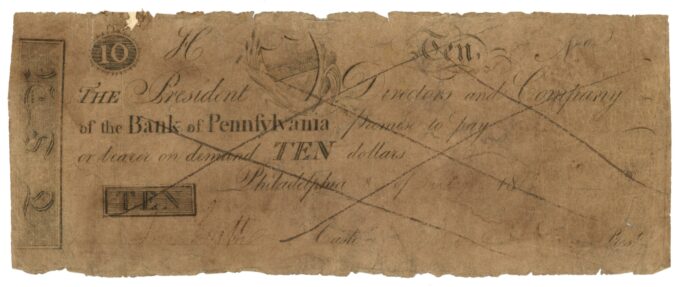 10 H Ten No
THE President Directors and Company
of the Bank of Pennſylvania promise to pay
or bearer on demand TEN dollars
Philadelphia of 18
TEN
Cashr Prest